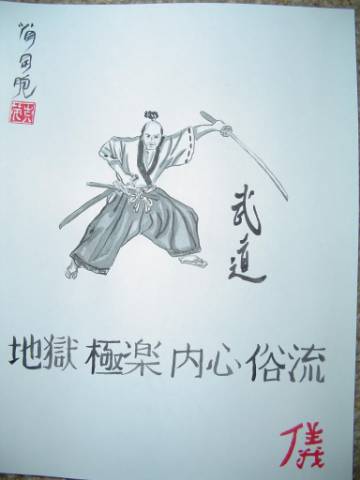 武道
地獄 極楽 内心 俗流
儀